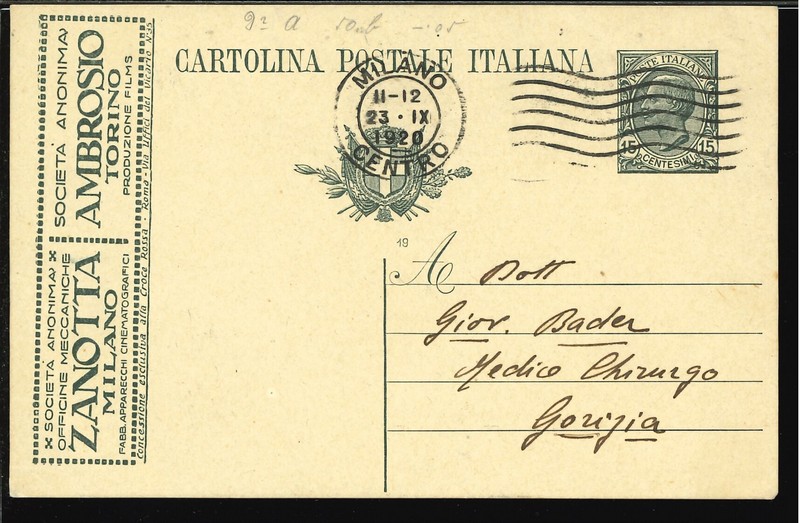 9ª A
CARTOLINA POSTALE ITALIANA
MILANO
11-12
23 · IX
1920
CENTRO
POSTE ITALIANE
15 15
CENTESIMI
19
A Dott
Giov. Bader
Medico Chirurgo
Gorizia
SOCIETÀ ANONIMA
AMBROSIO
TORINO
PRODUZIONE FILMS
SOCIETÀ ANONIMA
OFFICINE MECCANICHE
ZANOTTA
MILANO
FABB. APPARECCHI CINEMATOGRAFICI
Concessione esclusiva alla Croce Rossa - Roma - Via Uffici del Vicario N.35